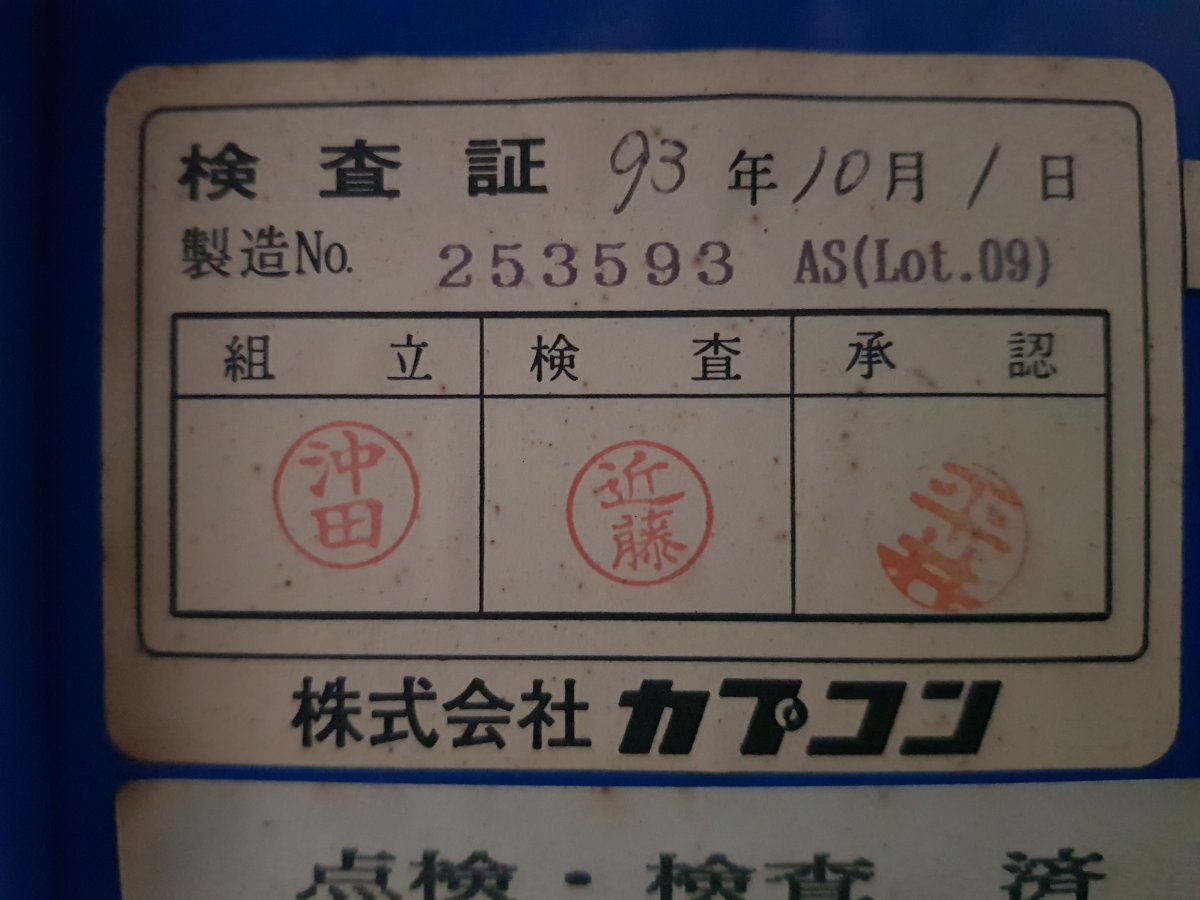 検査証 93年10月1日
製造No. 253593 AS(Lot.09)
組立 検査 承認
沖田 近藤
株式会社カプコン
点検・検査 済